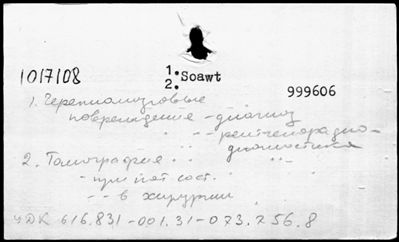 1017108
1. Soawt
2.
999606
1. Черепномозговые
повреждение - диагноз
- - - рентгенорадио-
диагностика
2. Томография " "
- при пат. сост. "
- - в хирургии
УДК 616.831-001.31-073.756.8